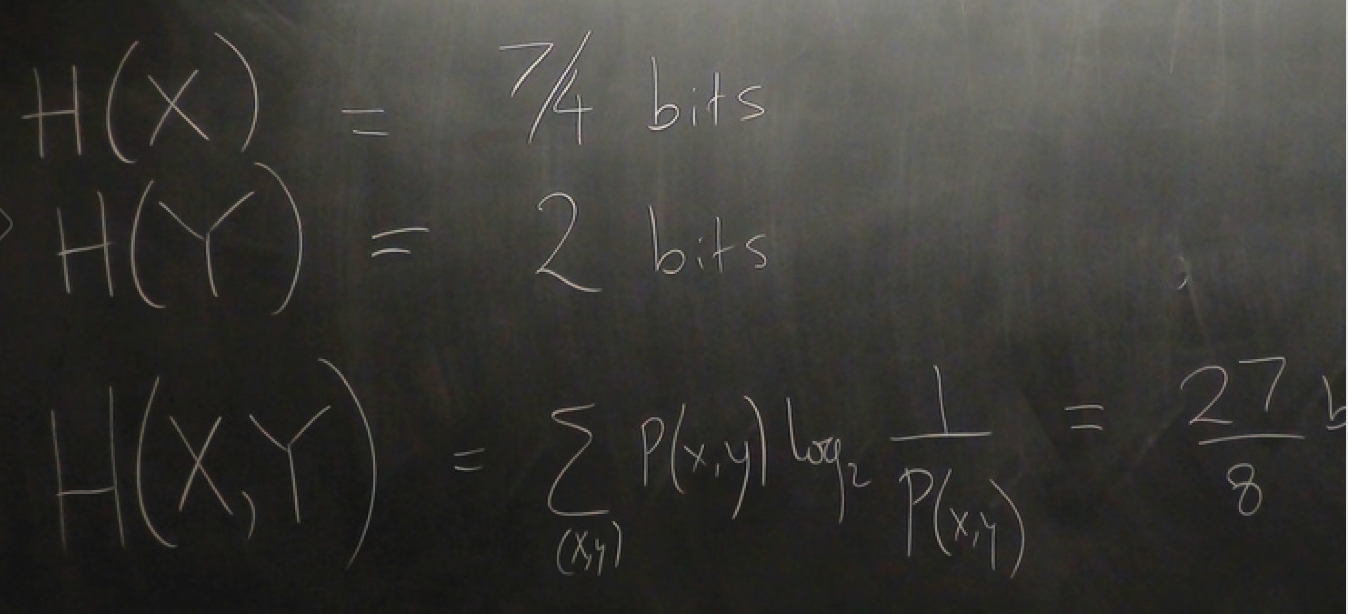 H(X) = 7/4 bits
H(Y) = 2 bits
H(X,Y) = ∑ P(x,y) log₂ 1/P(x,y) = 27/8 b
(x,y)